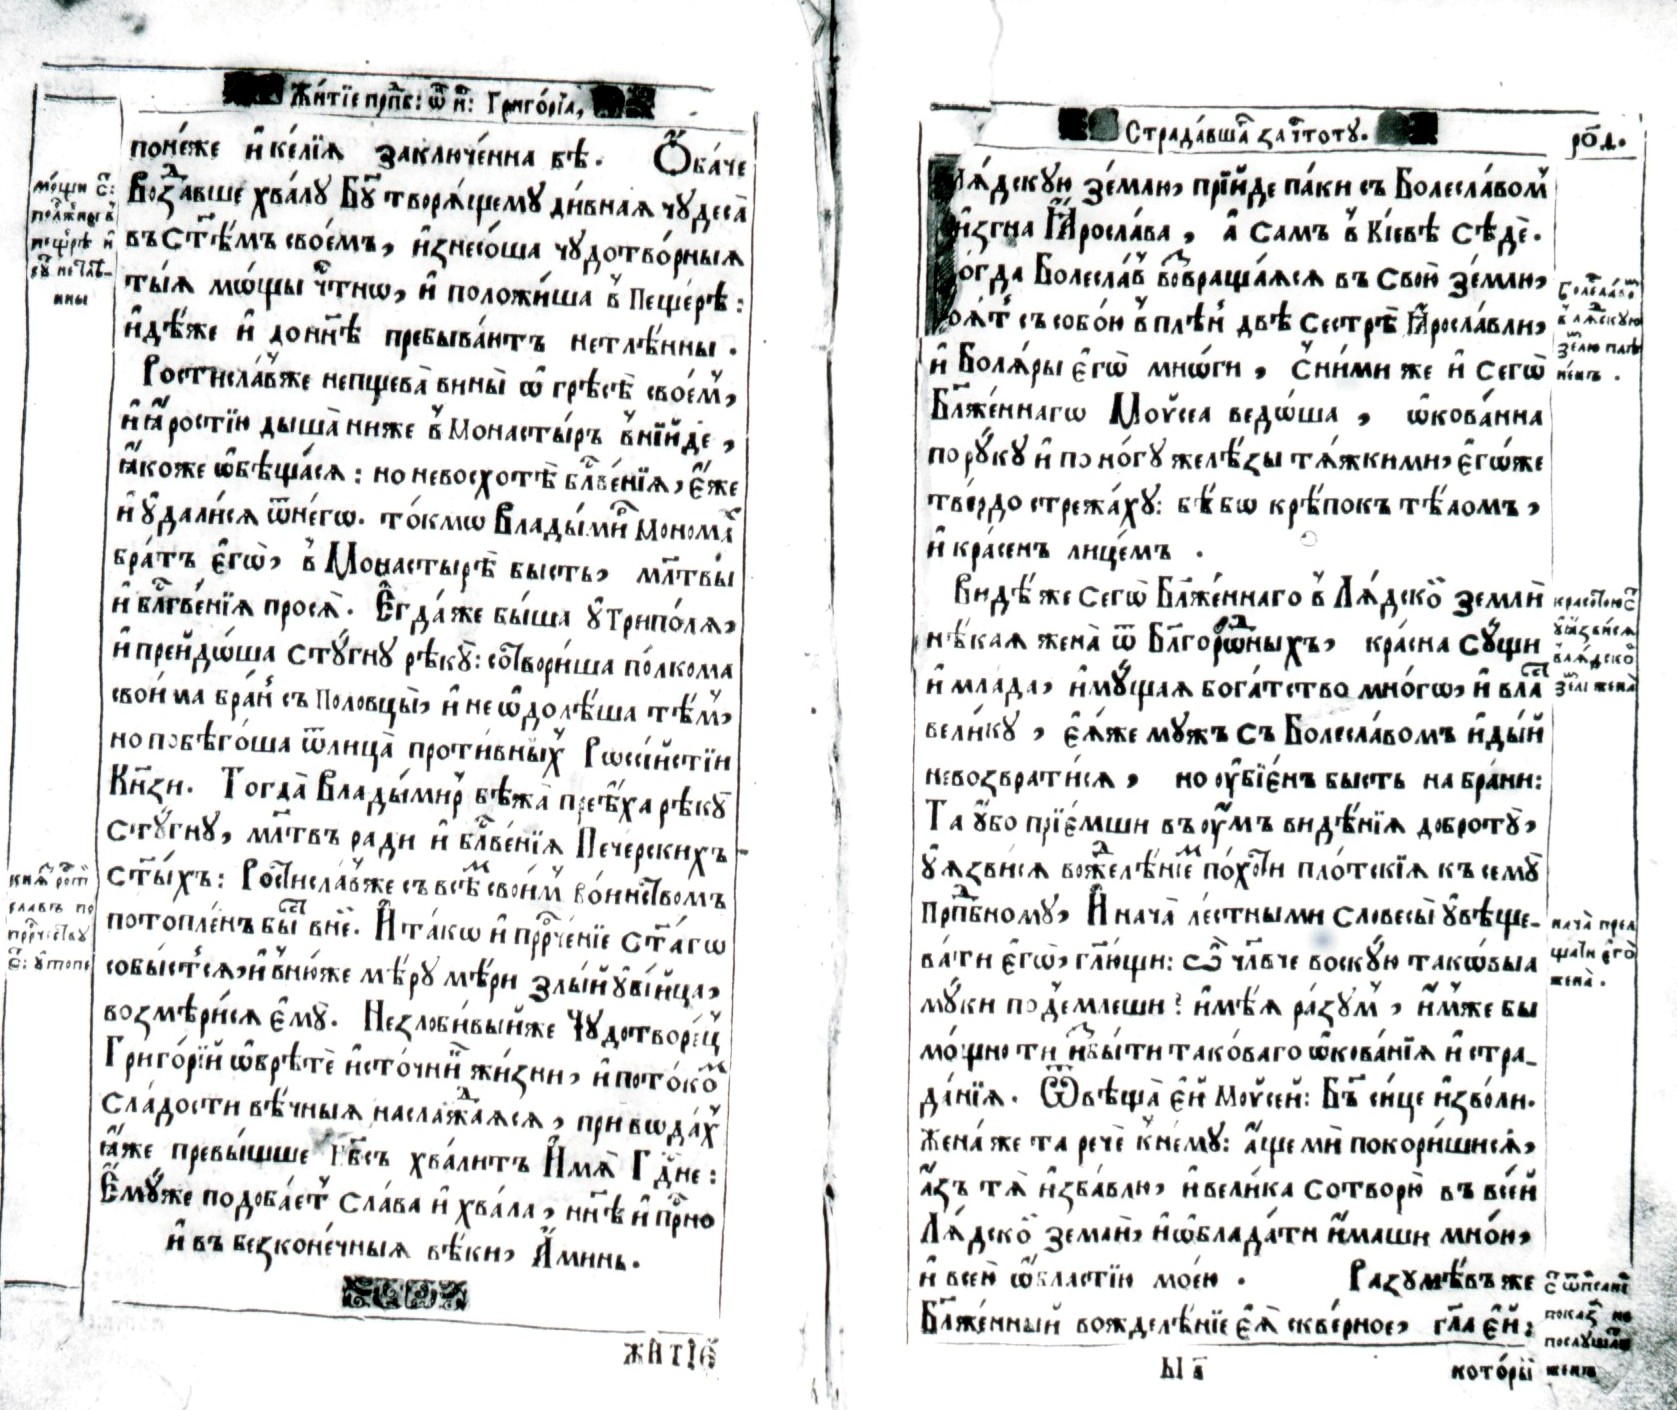 Житїе прпⷣб: ѿ н҃: Григо́рїа,
поне́же и҆ ке́лїѧ заключе́нна бѣ. Ѻ҆ба́че
Возⷣавше хвалꙋ̀ Бг҃ꙋ творѧ́щемꙋ ди́внаѧ чꙋдеса̀
въ Ст҃ѣ́мъ свое́мъ, и҆знесо́ша чꙋдотво́рныѧ
ты́ѧ мѡ́щы чⷭ҇тнѡ, и҆ положи́ша в̾ Пеще́рѣ:
и҆дѣ́же и҆ до нн҃ѣ пребыва́ютъ нетлѣ́нны.
Ростисла́в̾же непщева̀ вины̀ ѡ҆ грѣсѣ̀ свое́м̾,
и҆ ꙗ҆́ростїю дыша̀ ниже в̾ Монасты́ръ вни́йде,
ꙗ҆́коже ѡ҆бѣща́сѧ: но не восхотѣ̀ блⷭ҇ве́нїѧ, є҆́же
и҆ ᲂу҆дали́сѧ ѿ негѡ̀. то́кмѡ Влады́миⷬ Монома́х
бра́тъ є҆гѡ̀, в̾ Монастырѣ̀ бысть, мл҃твы
и҆ блⷭ҇ве́нїѧ просѧ̀. Є҆гда́же бы́ша ᲂу҆ Трипо́лѧ,
и҆ прейдо́ша Стꙋ́гнꙋ рѣкꙋ̀: сотвори́ша по́лкома
свои́ма бра́н̾ съ Половцы̀, и҆ не ѡ҆долѣ́ша тѣ́м̾,
но побѣго́ша ѿ лица̀ проти́вных̾ Рѡссі́йстїи
Кн҃зи. Тогда̀ Влады́мир̾ бѣжа̀ преѣ́ха рѣкꙋ̀
Стꙋ́гнꙋ, мл҃твъ ради и҆ блⷭ҇ве́нїѧ Пече́рскихъ
Ст҃ы́хъ: Ростисла́в̾же съ всѣⷨ свои́м̾ во́инством̾
потопле́нъ бысть в не́й. И҆ та́кѡ и҆ прⷪ҇рче́нїе Ст҃а́гѡ
собы́стсѧ, и҆ в̾ню́же мѣ́рꙋ мѣ́ри злы́й ᲂу҆бі́йца,
возмѣ́рисѧ є҆мꙋ̀. Незлоби́выйже Чꙋдотво́рец̾
Григо́рїй ѡ҆брѣ́те и҆сто́чник̾ жи́зни, и҆ пото́коⷨ
сла́дости вѣ́чныѧ наслаждаѧсѧ, при вѡда́х̾
ꙗ҆́же превы́шше Нб҃съ хва́литъ И҆мѧ̀ Гдⷭ҇не:
Є҆мꙋ́же подоба́ет̾ сла́ва и҆ хвала̀, нн҃ѣ и҆ прⷭ҇но
и҆ въ безконе́чныѧ вѣ́ки, А҆ми́нь.
ЖИТІЄ
мо́щи с҃:
поло́жены в̾
пеще́рѣ и҆
сꙋть нетлѣ-
нны
кнѧ́зь рости
славъ по
прⷪ҇рчествꙋ
с҃: ᲂу҆топе
Страда́вша за чⷭ҇тотꙋ.
ро҃д.
Лѧ́дскꙋю зе́млю, прїйде па́ки съ Болесла́вом̾
и҆згна Ꙗ҆росла́ва, а҆ самъ в̾ Кі́евѣ сѣ́де.
Тогда Болесла́в̾ возвраща́ѧсѧ въ свою̀ зе́млю,
поѧ́т̾ съ собо́ю в̾ плѣ́н̾ двѣ̀ сестрѣ̀ Ꙗ҆росла́вли,
и҆ Болѧ́ры є҆гѡ̀ мнѡ́ги, с̾ ни́ми же и҆ сегѡ̀
Бл҃же́ннагѡ Моѷсеа ведо́ша, ѡ҆кова́нна
по рꙋ́кꙋ и҆ по но́гꙋ желѣ́зы тѧ́жкими, є҆го́же
тве́рдо стрежа́хꙋ: бѣ́ бо крѣ́покъ тѣ́ломъ,
и҆ кра́сенъ лице́мъ.
Видѣ́ же сегѡ̀ Бл҃же́ннаго в̾ Лѧ́дскоⷨ землѝ
нѣ́каѧ жена̀ ѿ Бл҃горо́дныхъ, кра́сна сꙋ́щи
и҆ мла́да, и҆мꙋ́щаѧ бога́тство мно́гѡ, и҆ власть
вели́кꙋ, є҆ѧ́же мꙋжъ съ Болесла́вомъ и҆ды́й
невозврати́сѧ, но ᲂу҆бїе́нъ бысть на бра́ни:
Та ᲂу҆́бо прїе́мши въ ᲂу҆́мъ видѣ́нїѧ добротꙋ̀,
ᲂу҆ѧзви́сѧ вожделѣ́нїеⷨ по́хоти пло́тскїѧ къ семꙋ̀
Прпⷣбномꙋ, И҆ нача̀ ле́стными словесы̀ ᲂу҆вѣще-
ва́ти є҆гѡ̀, гл҃ющи: Ѽ чл҃вче воскꙋ́ю такѡвы́а
мꙋ́ки под̾е́млеши? и҆мѣ́ѧ ра́зꙋм̾, и҆́мже бы
мо́щно ти и҆збы́ти тако́ваго ѡ҆кова́нїѧ и҆ стра-
да́нїѧ. Ѿвѣща̀ є҆́й Моѷсей: Бг҃ъ си́це и҆зво́ли.
Жена́ же та речѐ к̾не́мꙋ: а҆́ще мѝ покори́шисѧ,
а҆́зъ тѧ̀ и҆зба́влю, и҆ вели́ка сотворю̀ въ все́й
Лѧ́дскоⷨ землѝ, и҆ ѡ҆блада́ти и҆́маши мно́ю,
и҆ все́ю ѡ҆́бластїю мое́ю. Разꙋмѣ́въ же
Бл҃же́нный вожделѣ́нїе є҆ѧ̀ скве́рное, гл҃а є҆́й:
кото́рый
Болесла́во
в̾ лѧ́дскꙋю
зе́млю плѣ
не́нъ.
красото́ю с҃
ᲂу҆ѧзви́сѧ
в̾ лѧ́дской
землѝ жена̀
нача̀ прел
ща́ти є҆го̀
жена̀.
с҃ ѿ писанї
показ̾ не
послꙋшати
жены